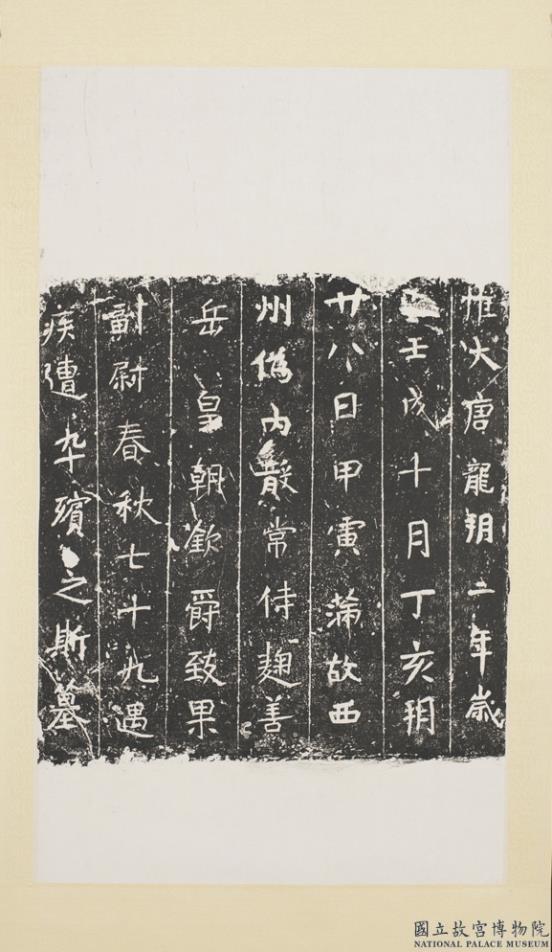 惟大唐龍朔二年歲
壬戌十月丁亥朔
廿八日甲寅蒲故西
州偽内散常侍麹善
岳皇朝欽爵致果
副尉春秋七十九遇
疾遭卒殯之斯墓
國立故宮博物院
NATIONAL PALACE MUSEUM